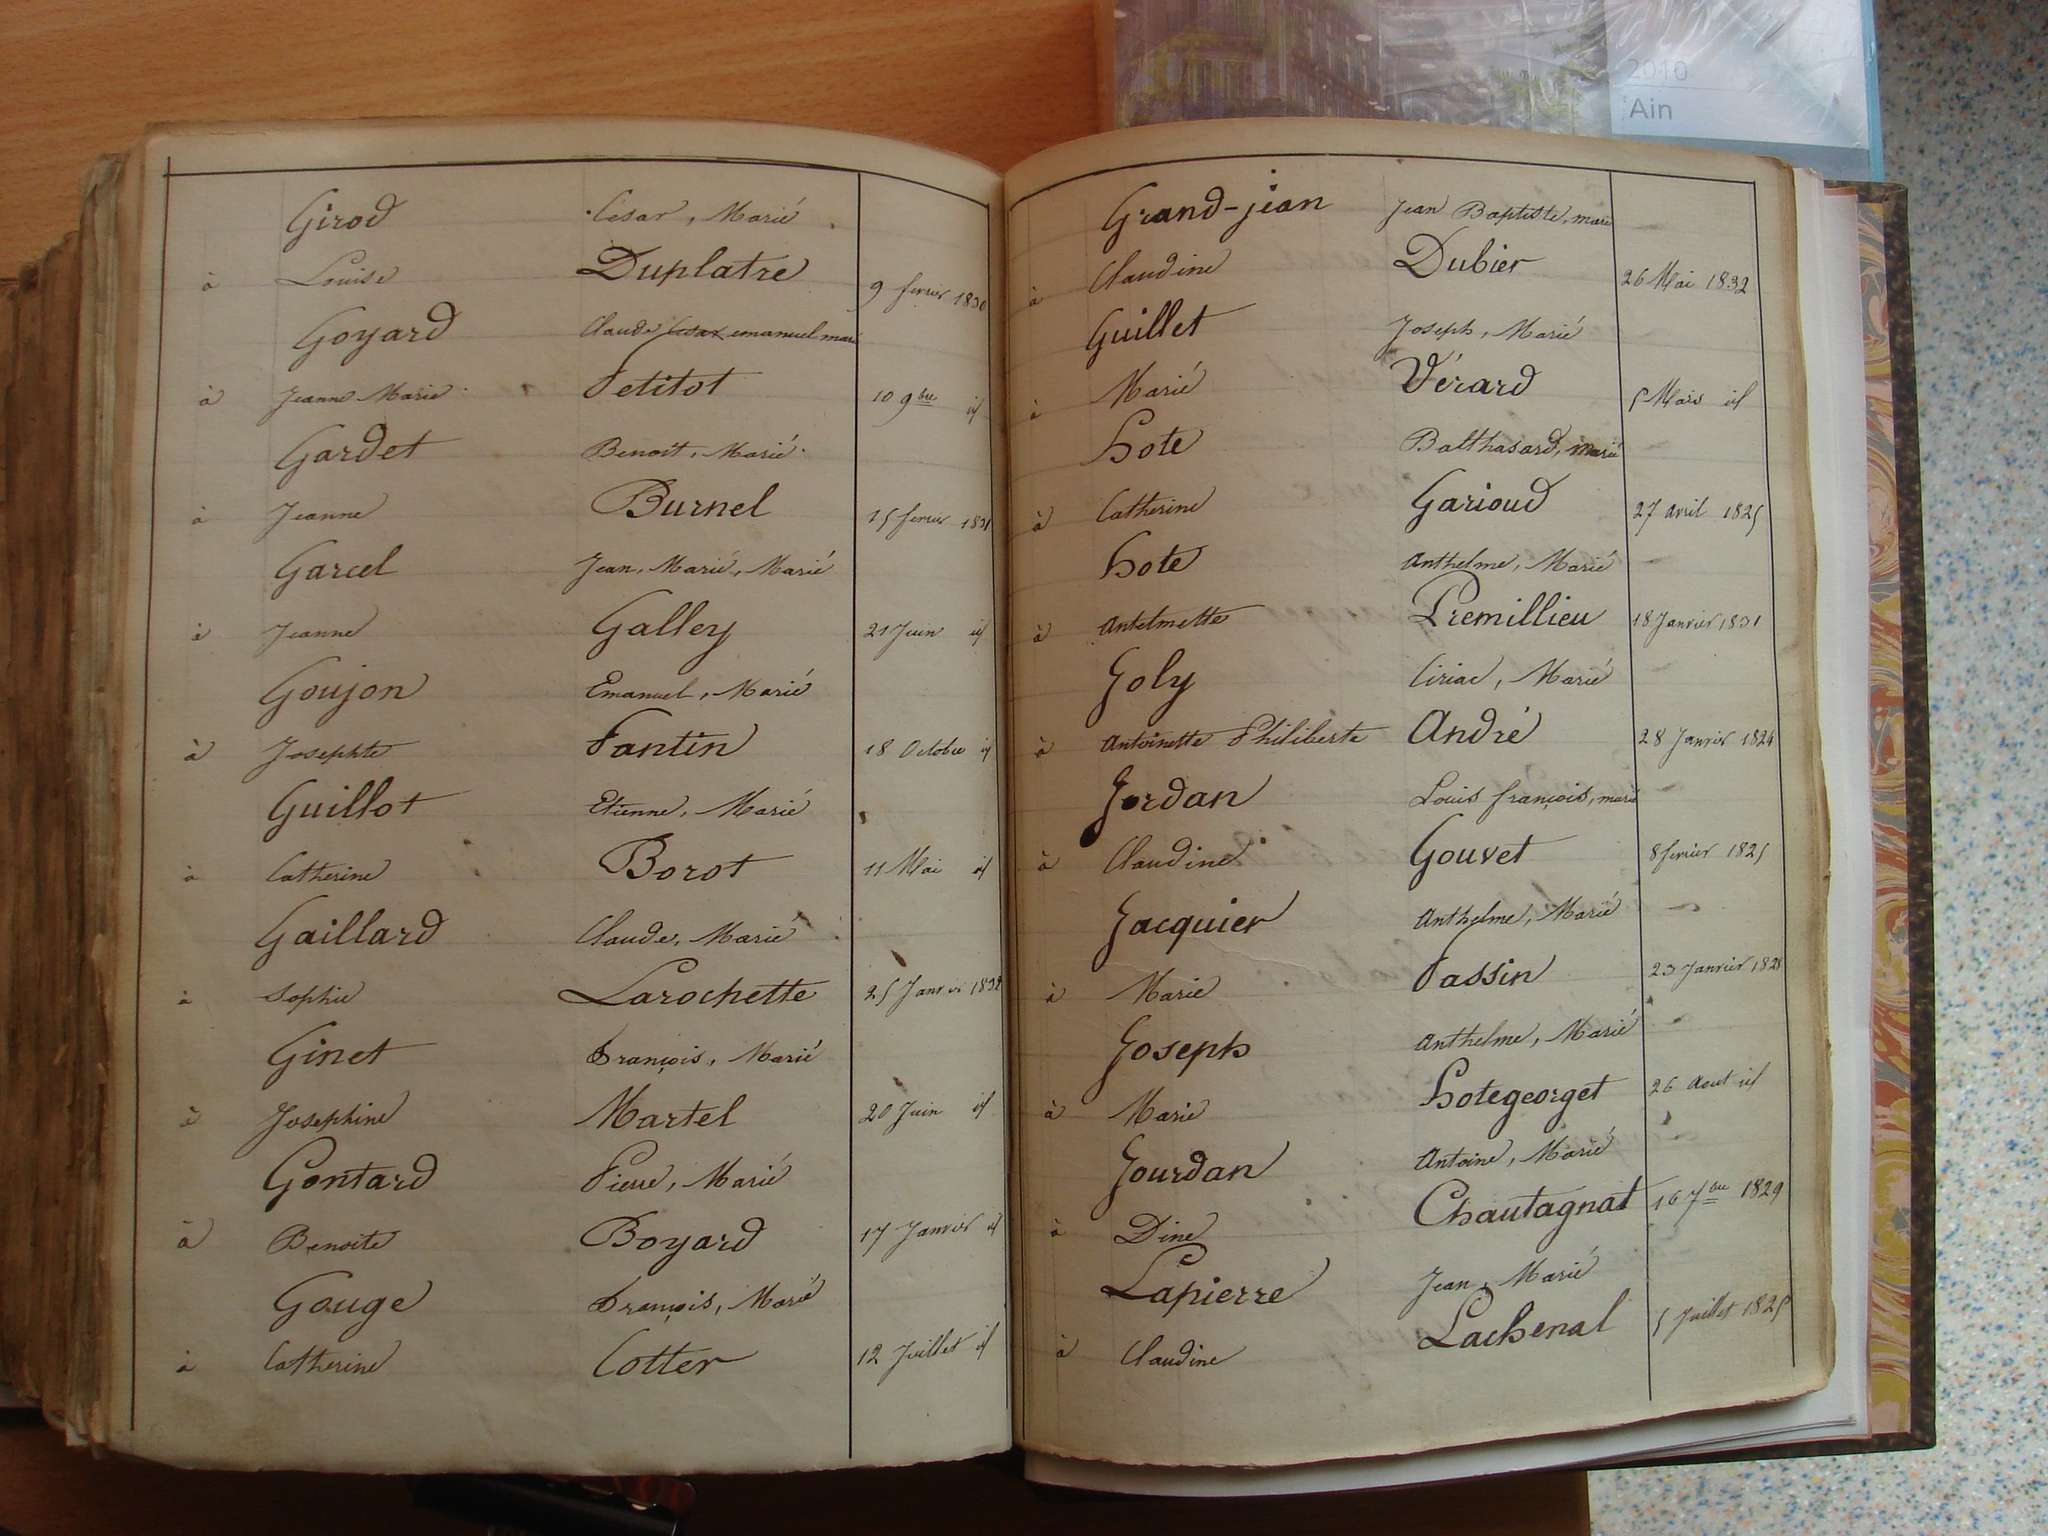 2010
Ain
Girod César, Marié
à Louise Duplatre 9 fevrier 1830
Goyard Claude Cesar emanuel marié
à Jeanne Marie Petitot 10 9bre id
Gardet Benoit, Marié
à Jeanne Burnel 15 fevrier 1831
Garcel Jean, Marie, Marié
à Jeanne Galley 21 Juin id
Goujon Emanuel, Marié
à Josephte Fantin 18 Octobre id
Guillot Etienne, Marié
à Catherine Borot 11 Mai id
Gaillard Claude, Marié
à Sophie Larochette 25 Janvier 1832
Ginet François, Marié
à Josephine Martel 20 Juin id
Gontard Pierre, Marié
à Benoite Boyard 17 Janvier id
Gouge François, Marié
à Catherine Cotter 12 Juillet id
Grand-jean Jean Baptiste, marié
à Claudine Dubier 26 Mai 1832
Guillet Joseph, Marié
à Marié Vérard 5 Mars id
hote Balthasard, marié
à Catherine Garioud 27 avril 1825
hote Anthelme, Marié
à Antelmette Premillieu 18 Janvier 1831
Joly Ciriac, Marié
à Antoinette Philiberte André 28 Janvier 1824
Jordan Louis françois, marié
à Claudine Gouvet 8 fevrier 1825
Jacquier Anthelme, Marié
à Marie Passin 23 Janvier 1828
Joseph Anthelme, Marié
à Marie hotegeorget 26 Aout id
Jourdan Antoine, Marié
à Dine Chautagnat 16 7bre 1829
Lapierre Jean, Marié
à Claudine Lachenal 5 Juillet 1825